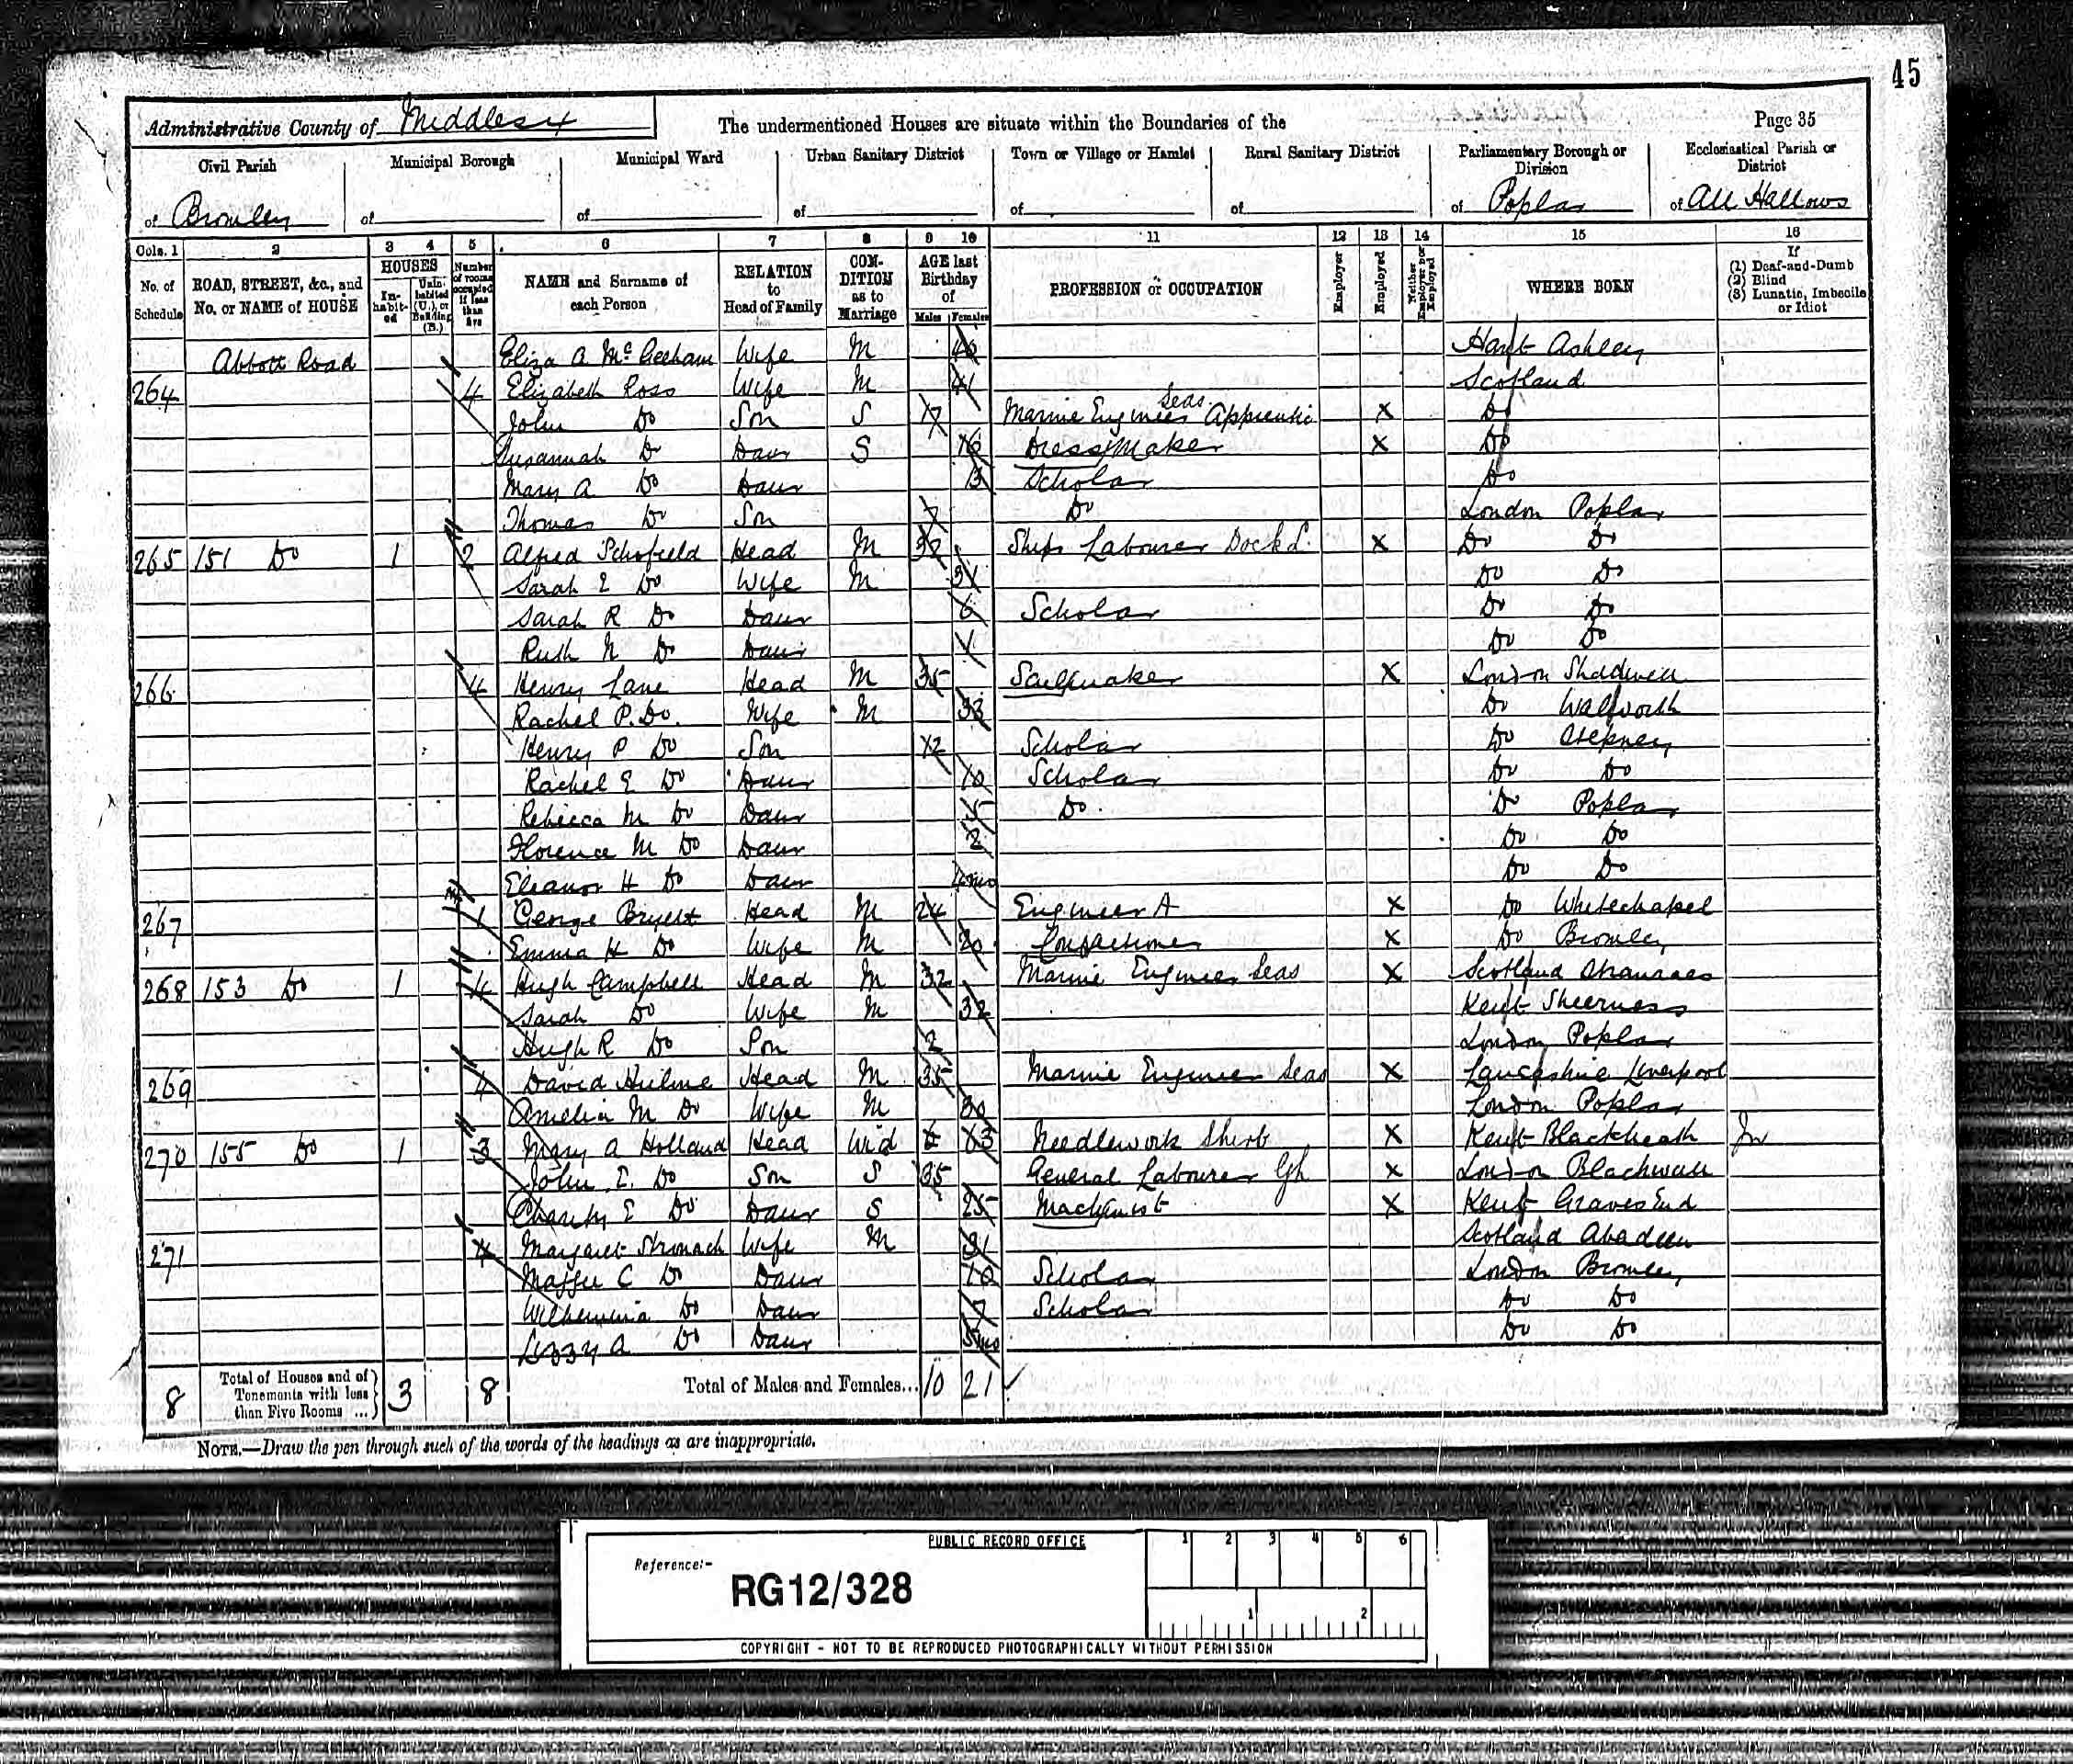 45
Administrative County of Middlesex The undermentioned Houses are situate within the Boundaries of the Page 35
Civil Parish Municipal Borough Municipal Ward Urban Sanitary District Town or Village or Hamlet Rural Sanitary District Parliamentary Borough or Division Ecclesiastical Parish or District
of Bromley of of of of of of Poplar of All Hallows
Cols. 1 2 3 4 5 6 7 8 9 10 11 12 13 14 15 16
No. of Schedule ROAD, STREET, &c., and No. or NAME of HOUSE HOUSES Inhabited Uninhabited (U.), or Building (B.) Number of rooms occupied if less than five NAME and Surname of each Person RELATION to Head of Family CONDITION as to Marriage AGE last Birthday of Males Females PROFESSION or OCCUPATION Employer Employed Neither Employer nor Employed WHERE BORN If (1) Deaf-and-Dumb (2) Blind (3) Lunatic, Imbecile or Idiot
Abbott Road Eliza A McGeeham Wife M Hants Ashley
264 4 Elizabeth Ross Wife M 41 Scotland
John Do Son S 17 Marine Engineer Seas Apprentic X Do
Susannah Do Daur S 16 Dress Maker X Do
Mary A Do Daur 13 Scholar Do
Thomas Do Son 7 Do London Poplar
265 151 Do 1 2 Alfred Schofield Head M 32 Ships Labourer Dock L. X Do Do
Sarah E Do Wife M 31 Do Do
Sarah R Do Daur 6 Scholar Do Do
Ruth N Do Daur 1 Do Do
266 4 Henry Lane Head M 35 Sailmaker X London Shadwell
Rachel P. Do. Wife M 33 Do Walworth
Henry P Do Son 12 Scholar Do Stepney
Rachel E Do Daur 10 Scholar Do Do
Rebecca M Do Daur 5 Do Do Poplar
Florence M Do Daur 2 Do Do
Eleanor H Do Daur Do Do
267 1 George Head M 24 Engineer A X Do Whitechapel
Emma H Do Wife M 20 Confectioner X Do Bromley
268 153 Do 1 4 Hugh Campbell Head M 32 Marine Engineer Seas X Scotland Stranraer
Sarah Do Wife M 32 Kent Sheerness
Hugh R Do Son 2 London Poplar
269 4 David Hulme Head M 35 Marine Engineer Seas X Lancashire Liverpool
Amelia M Do Wife M 30 London Poplar
270 155 Do 1 3 Mary A Holland Head Wid 63 Needlework Shirt X Kent Blackheath
John E. Do Son S 35 General Labourer X London Blackwall
Charity E Do Daur S 25 Machinist X Kent GravesEnd
271 4 Margaret Stronach Wife M 31 Scotland Abadeen
C Do Daur 10 Scholar London Bromley
Wilhemina Do Daur 7 Scholar Do Do
Lizzy A Do Daur 5mo Do Do
8 Total of Houses and of Tenements with less than Five Rooms ... 3 8 Total of Males and Females... 10 21
NOTE.—Draw the pen through such of the words of the headings as are inappropriate.
PUBLIC RECORD OFFICE 1 2 3 4 5 6
Reference:-
RG12/328
1 2
COPYRIGHT - NOT TO BE REPRODUCED PHOTOGRAPHICALLY WITHOUT PERMISSION